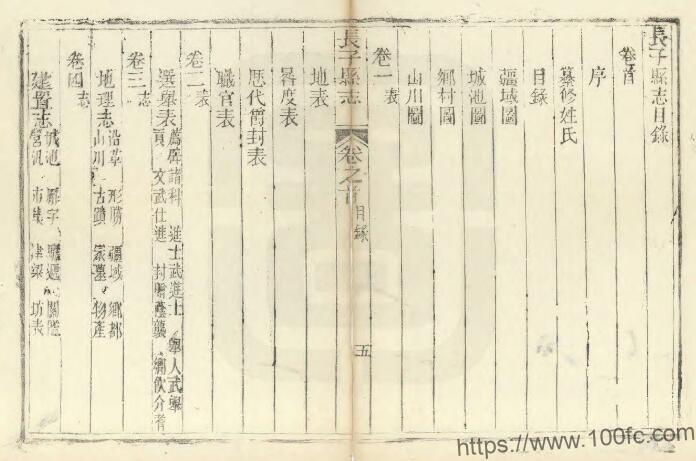 長子縣志目錄
卷首
序
纂修姓氏
目錄
疆域圖
城池圖
鄉村圖
山川圖
卷一 表
長子縣志
卷之首
目錄
五
地表
晷度表
歷代簡封表
職官表
卷二 表
選舉表
薦辟諸科 進士武進士 舉人武舉
貢 文武仕進 封贈蔭襲 鄉飲介耆
卷三 志
地理志
沿革 形勝 疆域 鄉都
山川 古蹟 冢墓 物產
卷四 志
建置志
城池 廨宇
營汛 市集 津梁 坊表
https://www.100fc.com